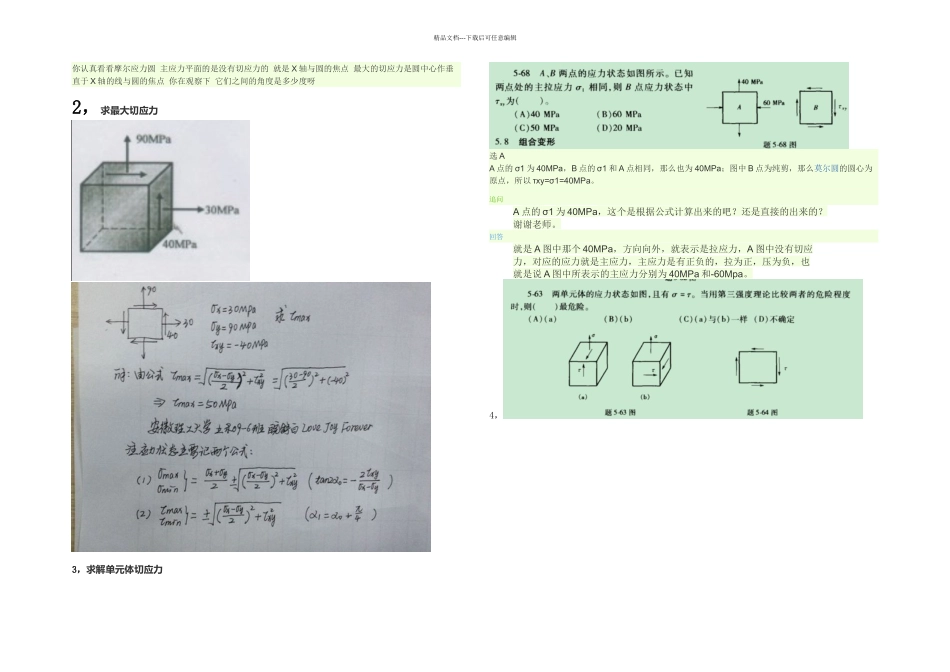 精品文档---下载后可任意编辑
你认真看看摩尔应力圆 主应力平面的是没有切应力的 就是 X 轴与圆的焦点 最大的切应力是圆中心作垂
直于 X 轴的线与圆的焦点 你在观察下 它们之间的角度是多少度呀
2，求最大切应力
90MPa
30MPa
40MPa
90
30
40
σx=30MPa
σy=90MPa
τxy=-40MPa
求 τmax
解:由公式 τmax=√((σx-σy)/2)²+τ²xy =√((30-90)/2)²+(-40)²
⇒ τmax=50MPa
Love Joy Forever
注:应力状态主要记两个公式:
(1) σmax σmin }= (σx+σy)/2 ±√((σx-σy)/2)²+τ²xy (tan2α₀=-2τxy/(σx-σy))
(2) τmax τmin }= ±√((σx-σy)/2)²+τ²xy (α₁=α₀+π/4)
3，求解单元体切应力
5-68 A、B 两点的应力状态如图所示。已知
两点处的主拉应力 σ₁ 相同,则 B 点应力状态中
τxy为( )。
(A)40 MPa (B)60 MPa
(C)50 MPa (D)20 MPa
5.8 组合变形
40 MPa
60 MPa
A
B
τxy
题 5-68 图
选 A
A 点的 σ1 为 40MPa，B 点的 σ1 和 A 点相同，那么也为 40MPa；图中 B 点为纯剪，那么莫尔圆的圆心为
原点，所以 τxy=σ1=40MPa。
追问
A 点的 σ1 为 40MPa，这个是根据公式计算出来的吧？还是直接的出来的？
谢谢老师。
回答
就是 A 图中那个 40MPa，方向向外，就表示是拉应力，A 图中没有切应
力，对应的应力就是主应力，主应力是有正负的，拉为正，压为负，也
就是说 A 图中所表示的主应力分别为 40MPa 和-60Mpa。
5-63 两单元体的应力状态如图,且有 σ=τ。当用第三强度理论比较两者的危险程度
时,则( )最危险。
(A)(a) (B)(b) (C)(a)与(b)一样 (D)不确定
σ
τ
(a)
σ
τ
(b)
τ
题 5-63 图
题 5-64 图
4，